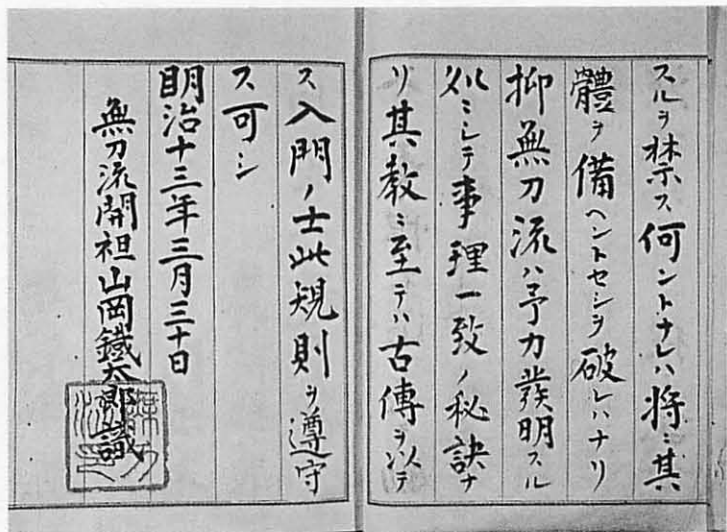 スルヲ禁ス何ントナレハ将ニ其
體ヲ備ヘントセシヲ破レハナリ
抑無刀流ハ予カ發明スル
処ニシテ事理一致ノ秘訣ナ
リ其教ニ至テハ古傳ヲ以テ
ス入門ノ士此規則ヲ遵守
ス可シ
明治十三年三月三十日
無刀流開祖山岡鐵太郎識